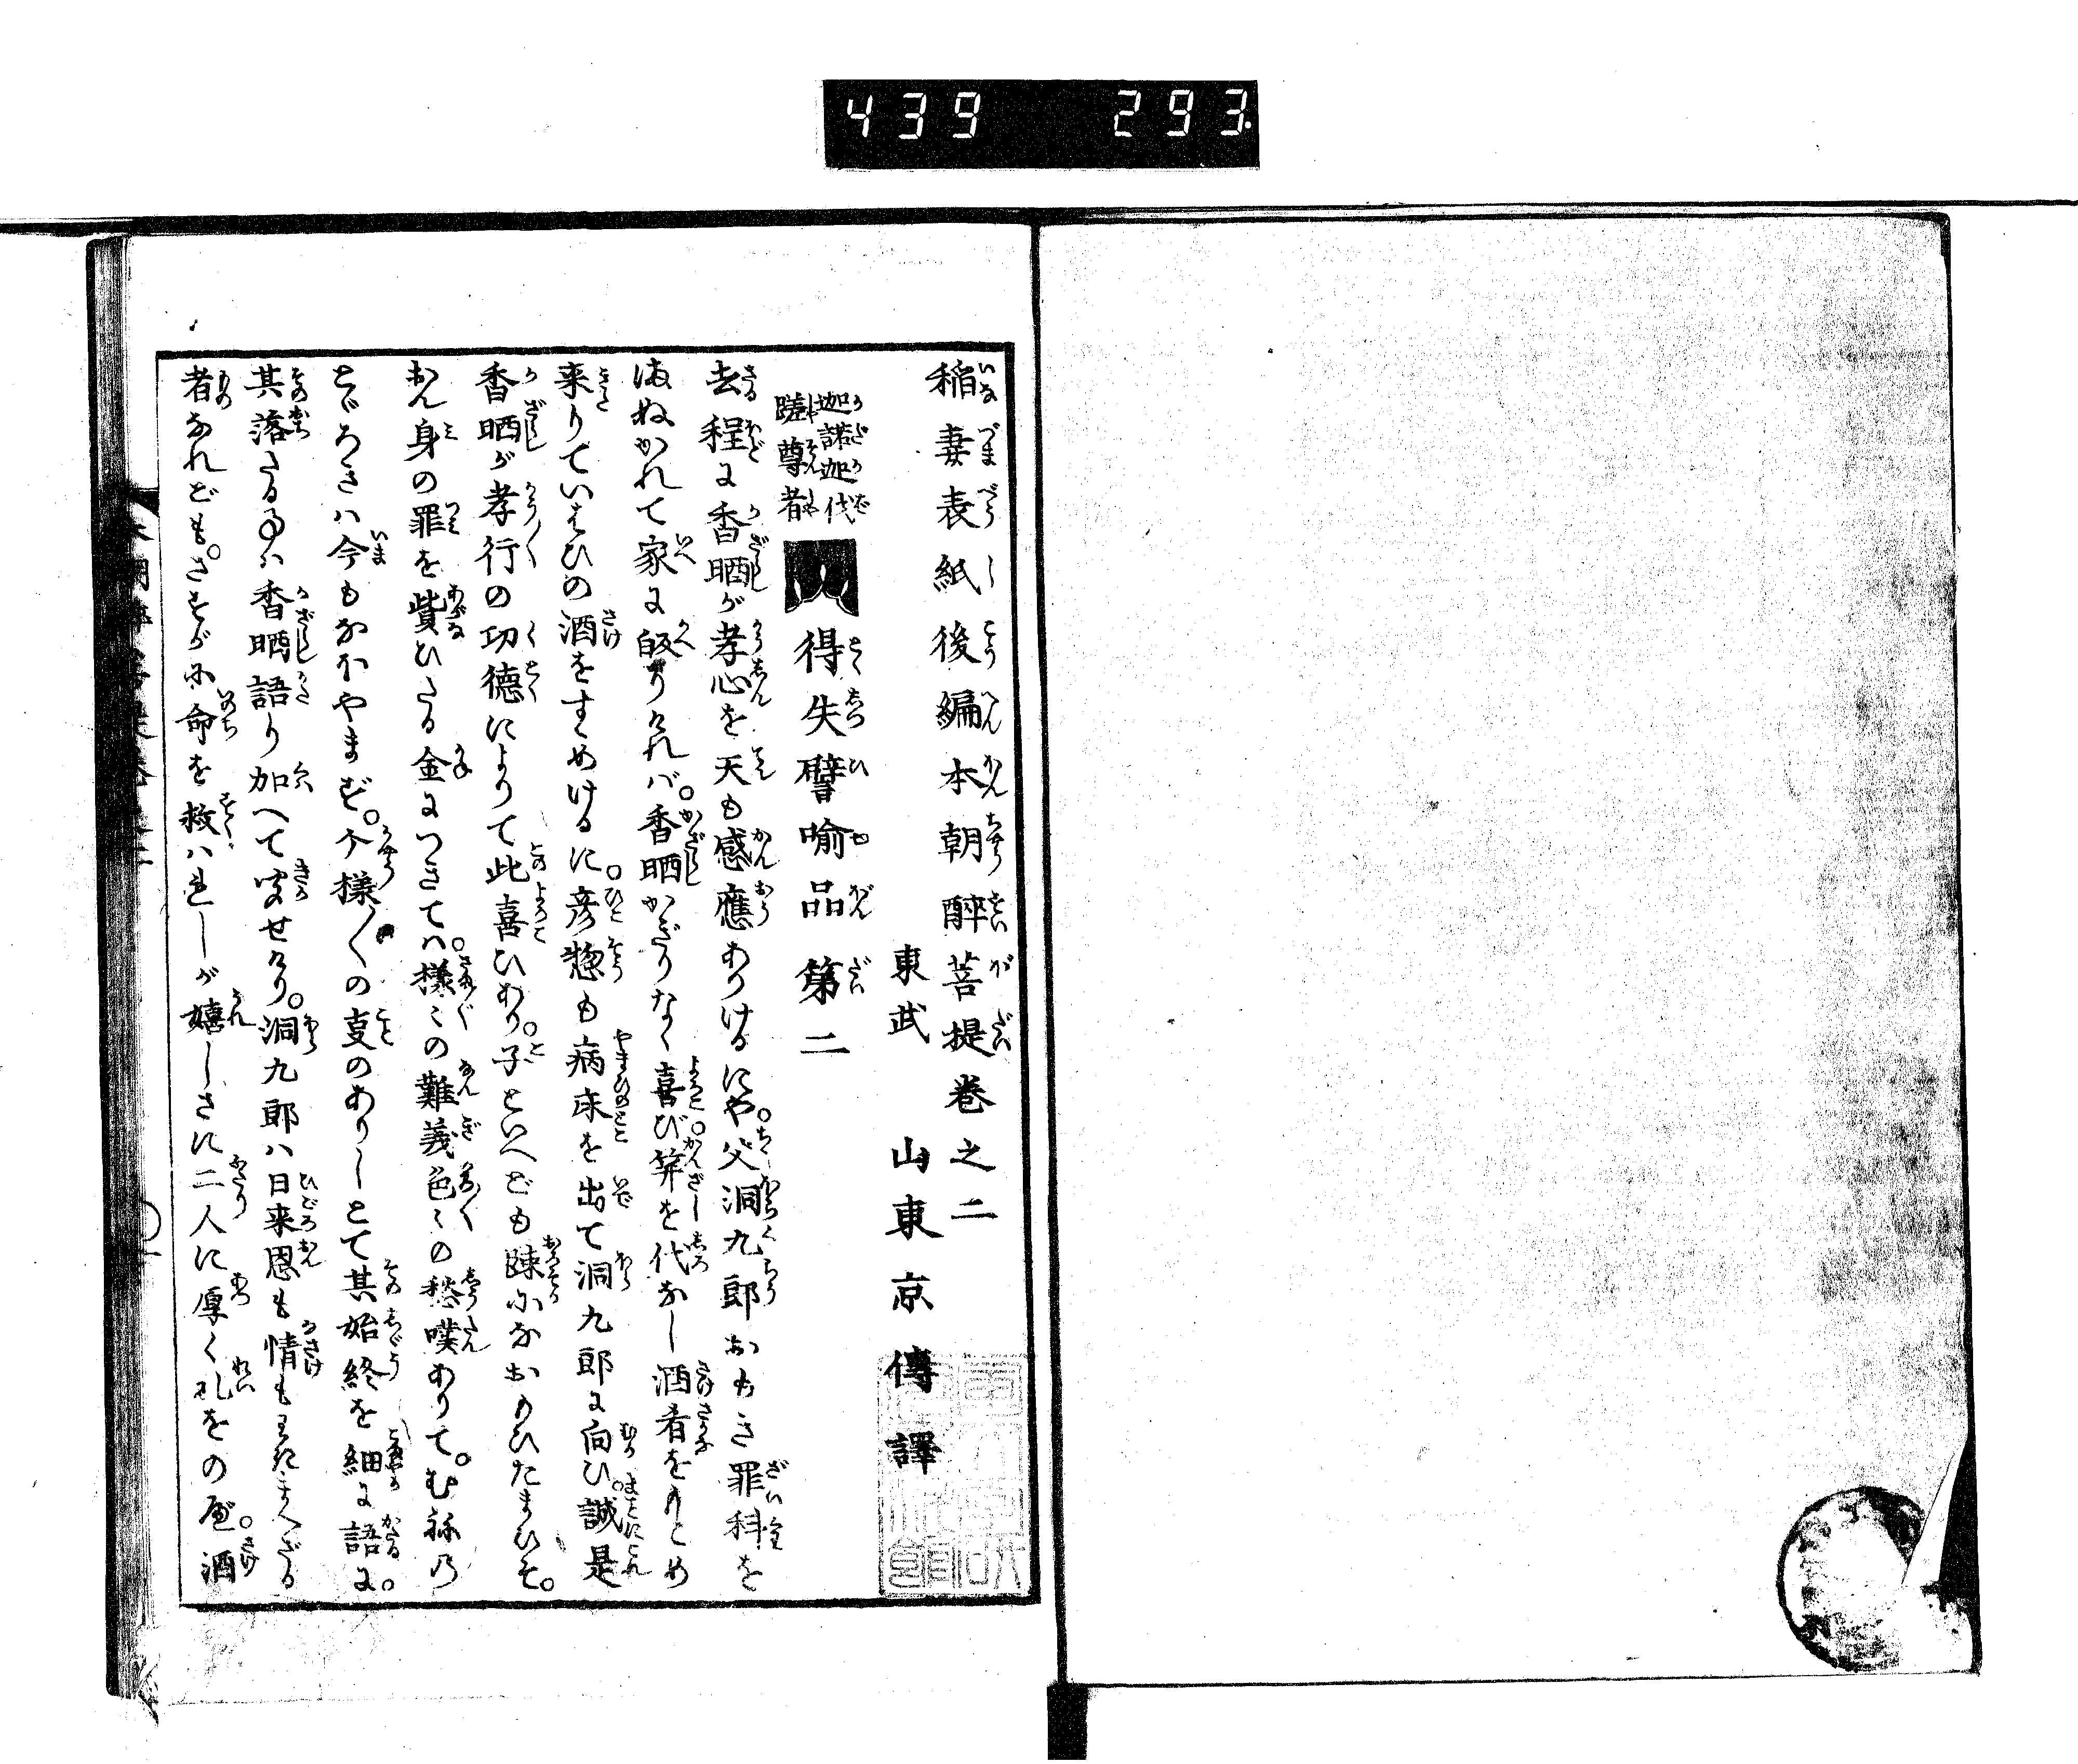 439 293
稲妻表紙後編本朝酔菩提巻之二
東武 山東京傳譯
迦諾迦代
蹉尊者
得失譬喩品第二
去程に香晒が孝心を天も感應ありけるにや。父洞九郎おもき罪科を
まぬかれて家に皈りければ。香晒かぎりなく喜び。笄を代なし酒肴をもとめ
来りていはひの酒をすゝめけるに。彦惣も病床を出て洞九郎に向ひ。誠是
香晒が孝行の功徳によりて此喜ひあり。子といへども疎になおもひたまひそ。
おん身の罪を贖ひたる金につきてハ。様〻の難義色〻の愁嘆ありて。むねの
とゞろきハ今もなほやまず。斗様〳〵の㕝のありしとて其始終を細に語に。
其落たる事ハ香晒語り加へて聞せけり。洞九郎ハ日来恩も情もわきまへざる
者なれども。さすがに命を救ハれしが嬉しさに二人に厚く礼をのべ。酒